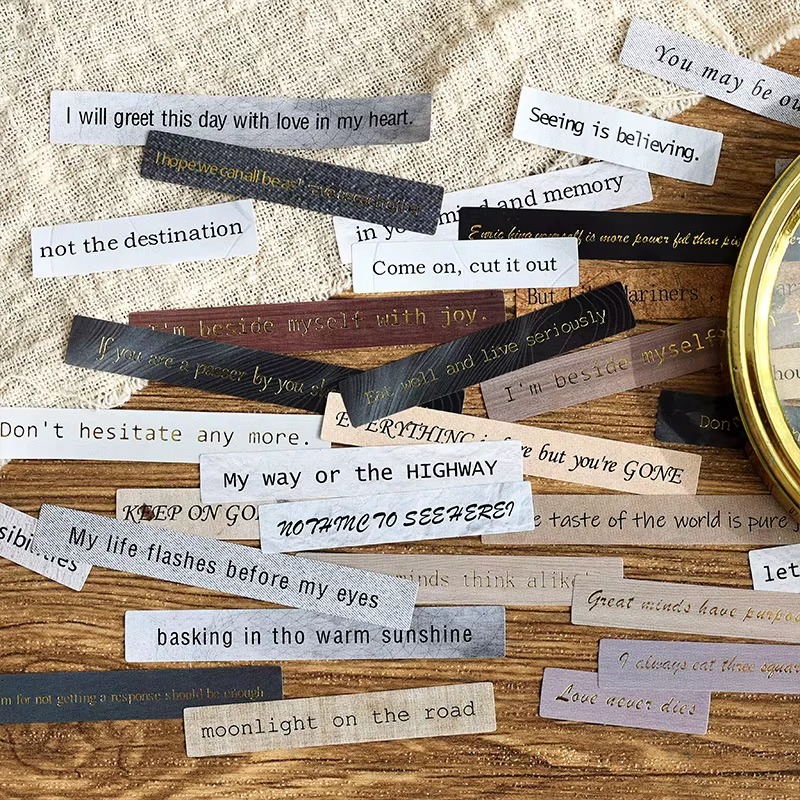 You may be
I will greet this day with love in my heart.
Seeing is believing.
I hope we can all be as
and memory
in your mind
not the destination
is more power ful than
Come on, cut it out
But Mariners
I'm beside myself with joy.
If you are a passer by you
Eat well and live seriously
I'm beside myself
Don't hesitate any more.
EVERYTHING but you're GONE
My way or the HIGHWAY
KEEP ON
NOTHINC TO SEE HEREI
taste of the world is pure
My life flashes before my eyes
minds think alike
let
Great minds have
basking in tho warm sunshine
I always eat three
for not getting a response should be enough
Love never dies
moonlight on the road